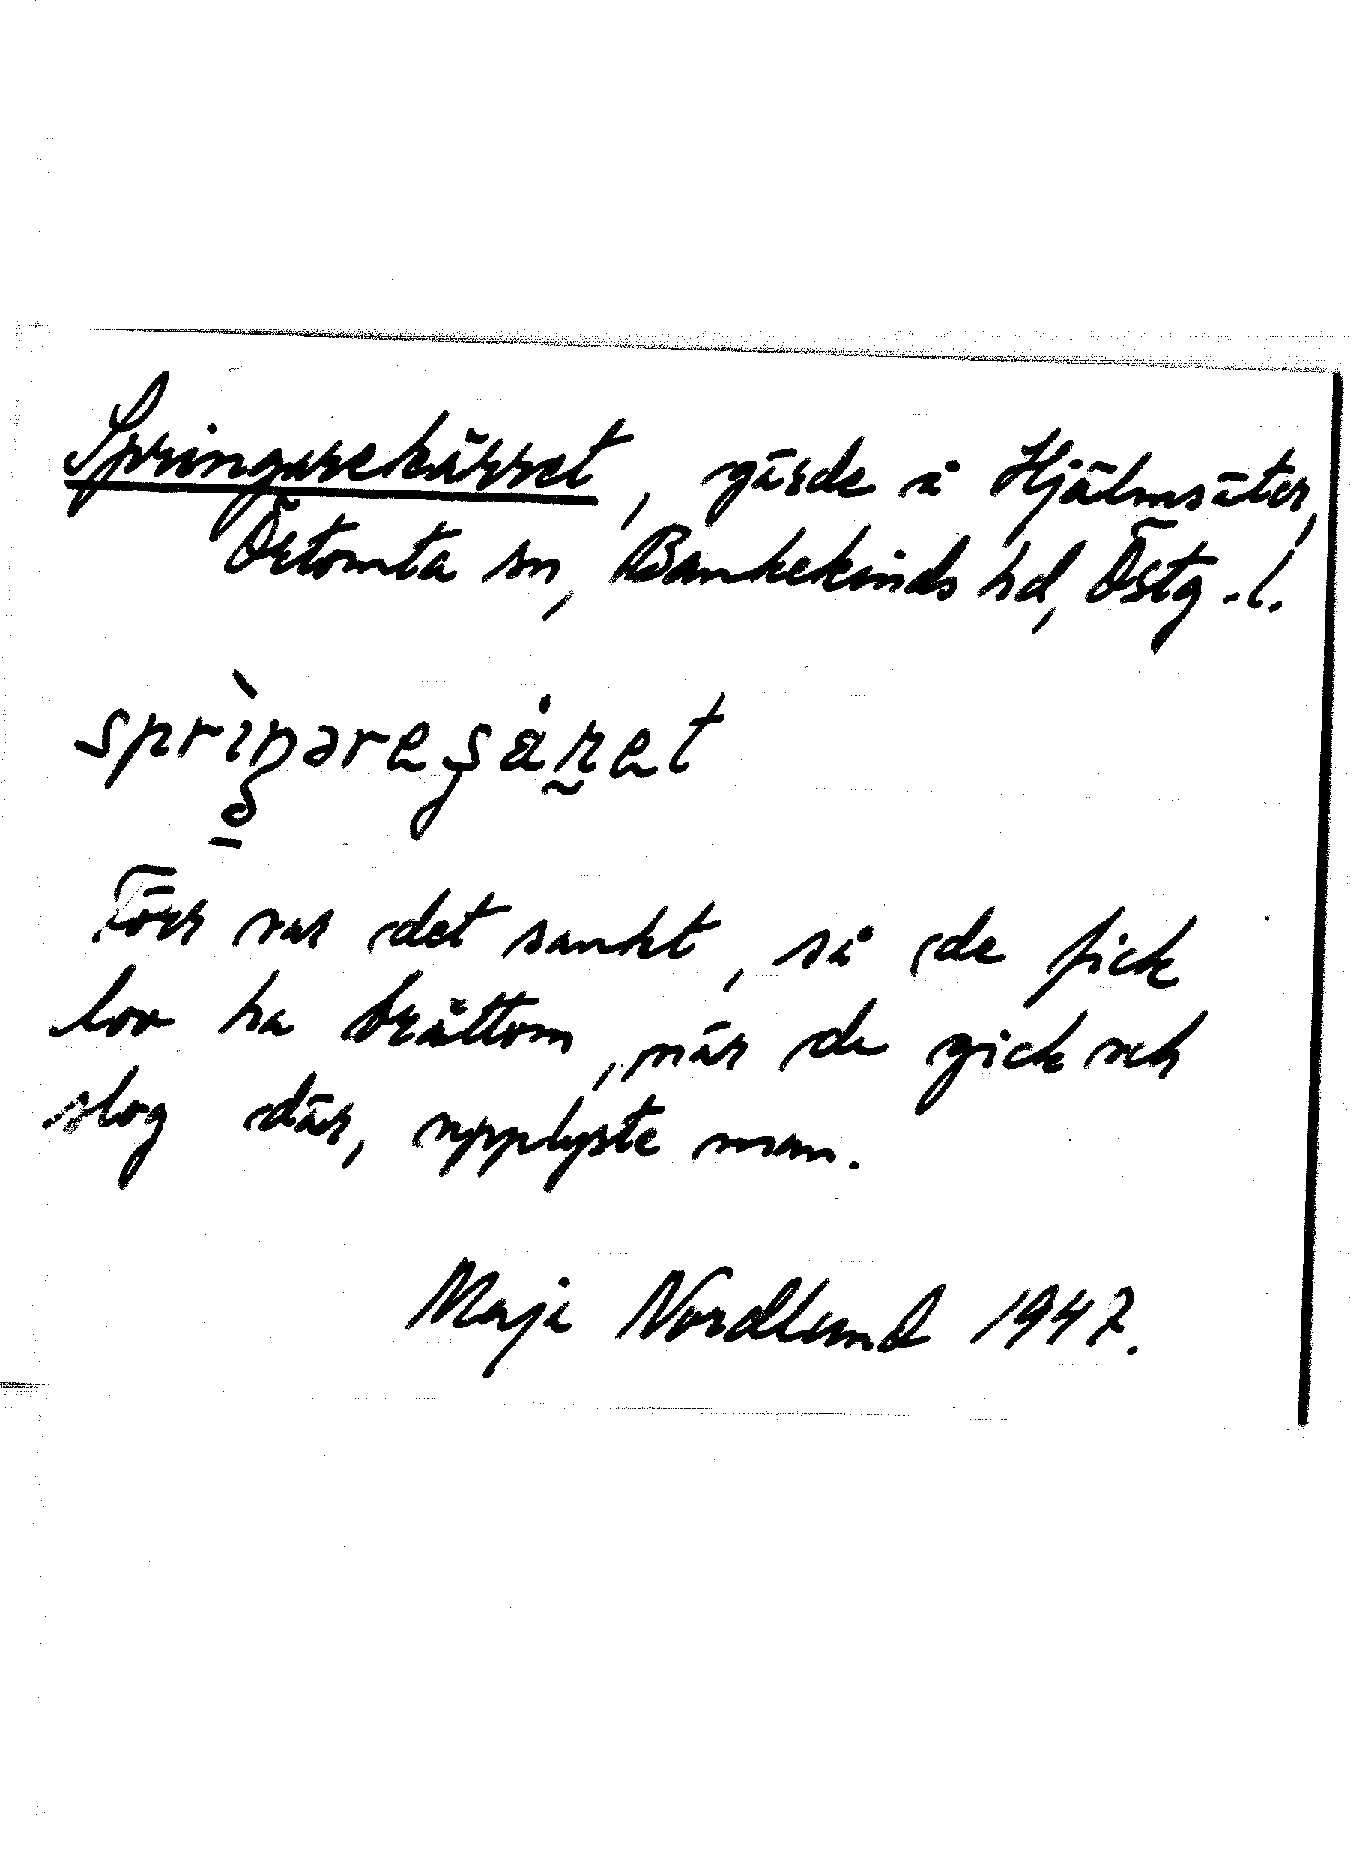 Springarekärret, gärde å Hjälmsäter,
Örtomta sn, Bankekinds hd, Östg.l.
Förr var det sankt, så de fick
lov ha bråttom, när de gick och
slog där, upplyste man.
Maja Nordlund 1947.